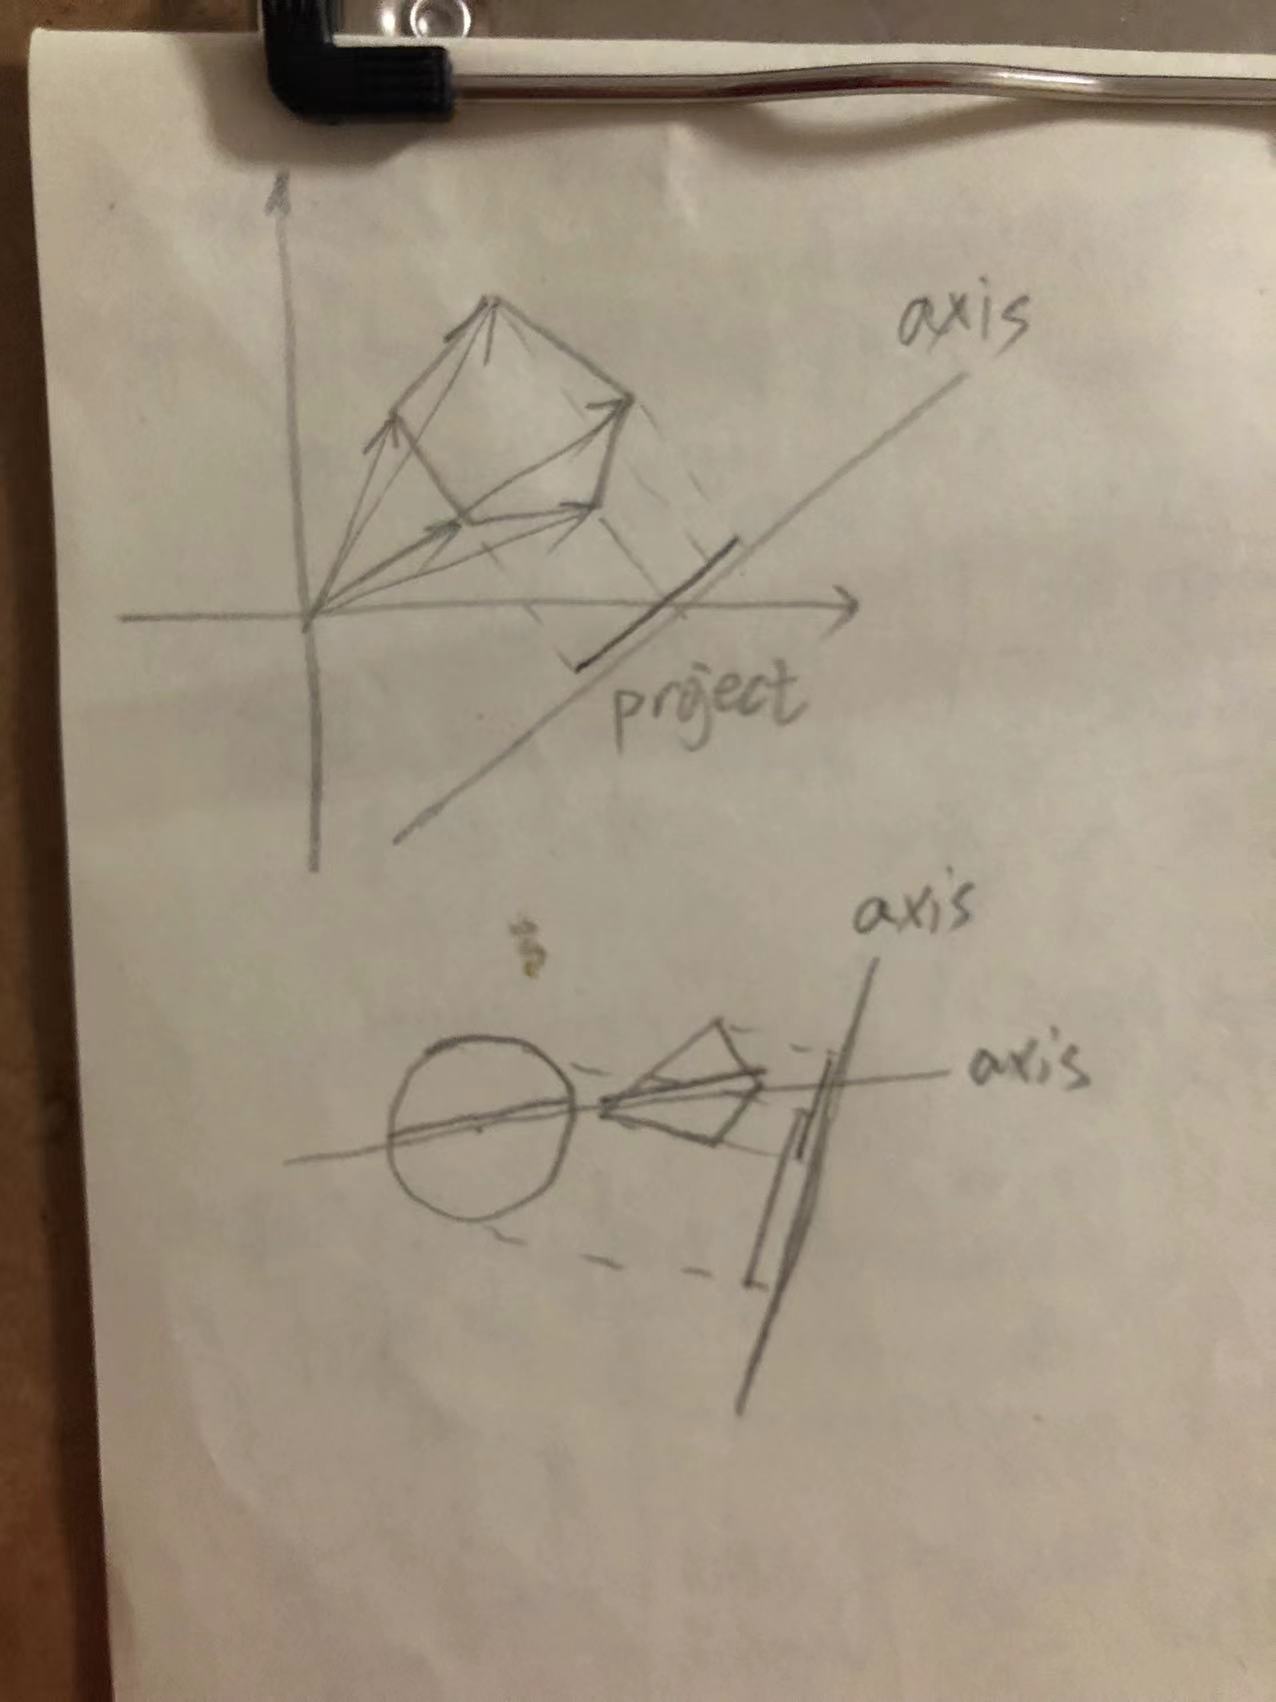 axis
project
axis
axis